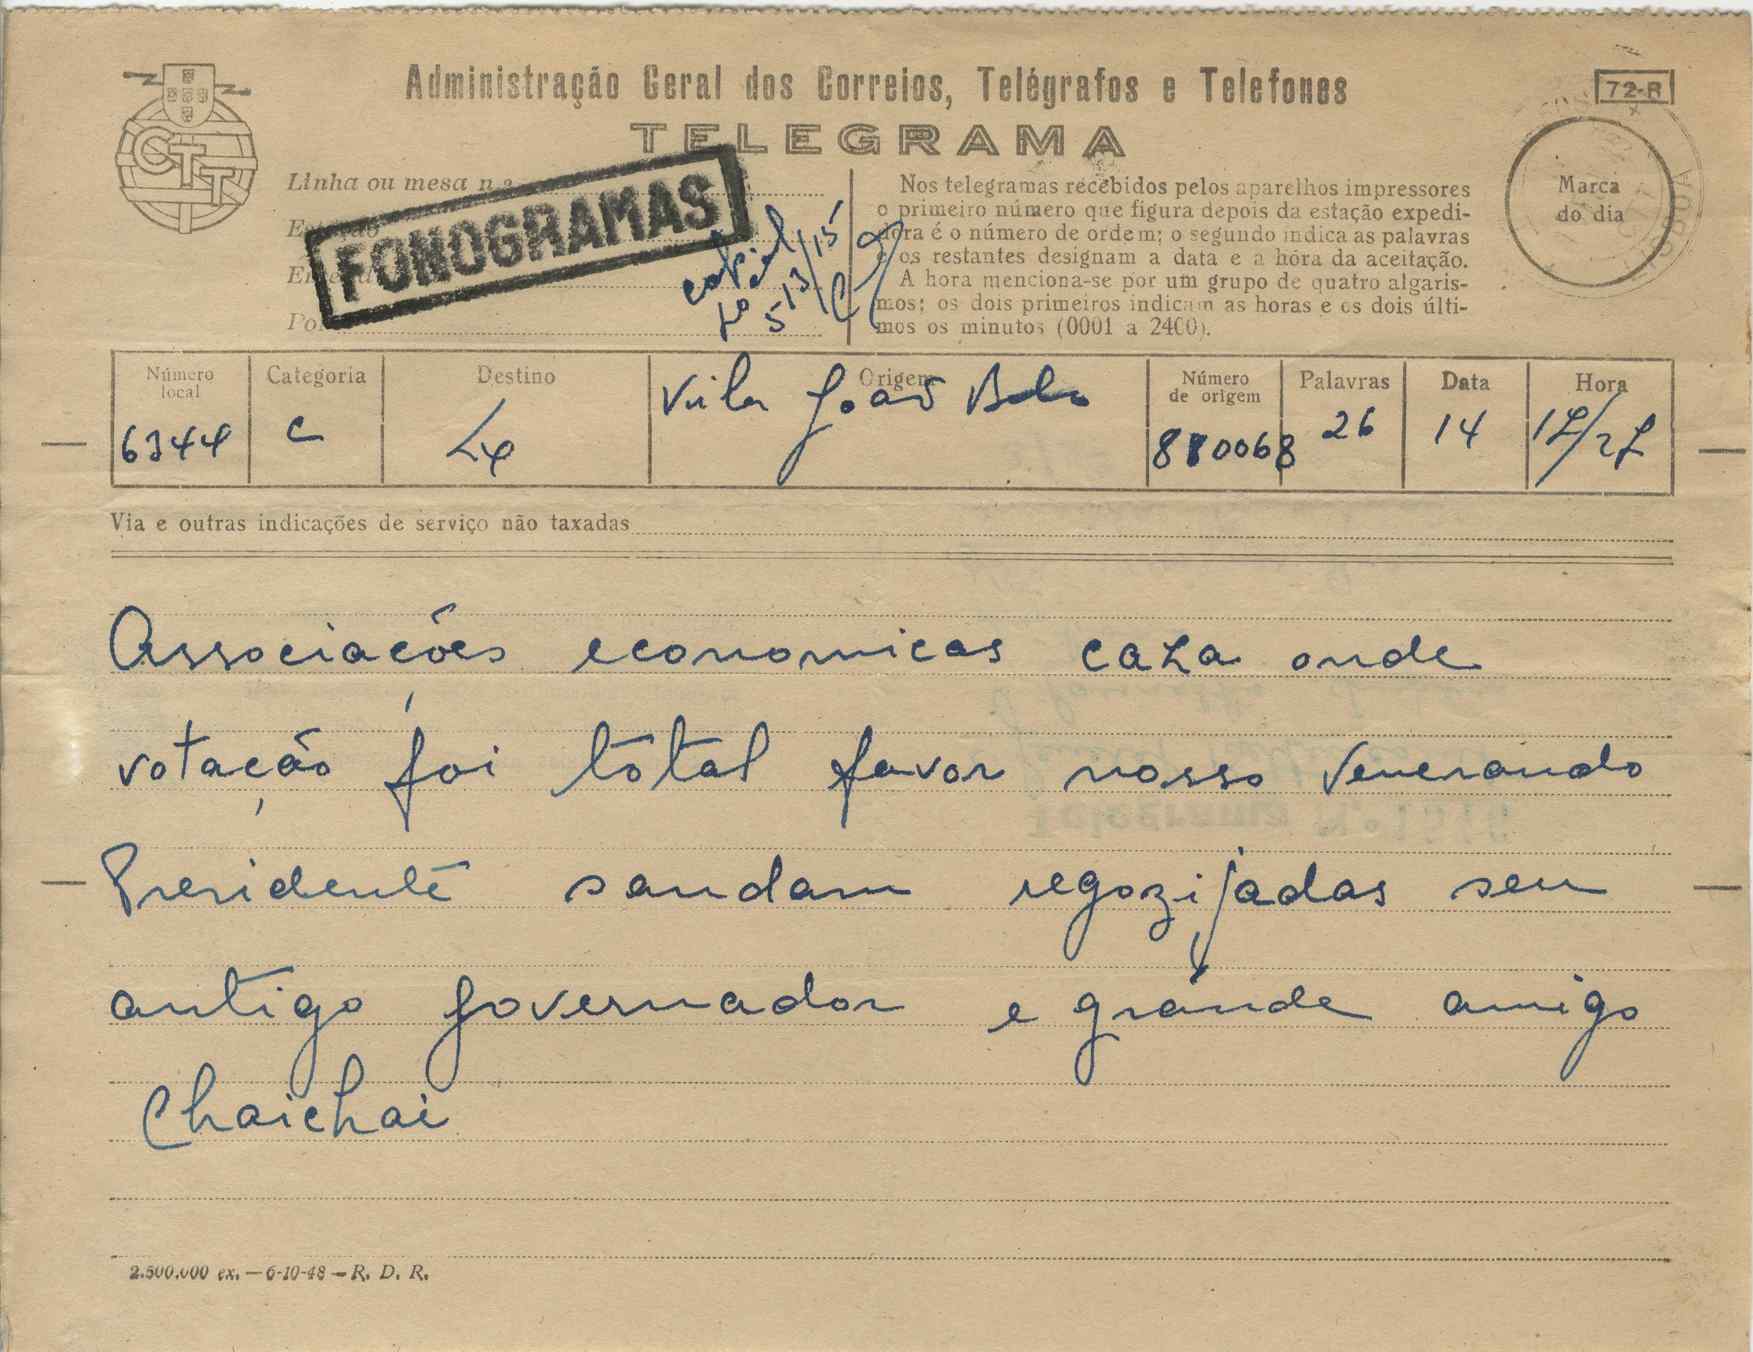 Administração Geral dos Correios, Telégrafos e Telefones
72-R
TELEGRAMA
CTT
Linha ou mesa n.º
FONOGRAMAS
Nos telegramas recebidos pelos aparelhos impressores
o primeiro número que figura depois da estação expedi-
dora é o número de ordem; o segundo indica as palavras
e os restantes designam a data e a hora da aceitação.
A hora menciona-se por um grupo de quatro algaris-
mos; os dois primeiros indicam as horas e os dois últi-
mos os minutos (0001 a 2400).
Marca
do dia
Número
local
Categoria
Destino
Origem
Número
de origem
Palavras
Data
Hora
6344
c
Lx
Vila João Belo
880068
26
14
17/27
Via e outras indicações de serviço não taxadas
Associações economicas caza onde
votação foi total favor nosso Venerando
Presidente saudam regozijadas seu
antigo governador e grande amigo
Chaichai
2.500.000 ex. — 6-10-48 — R. D. R.